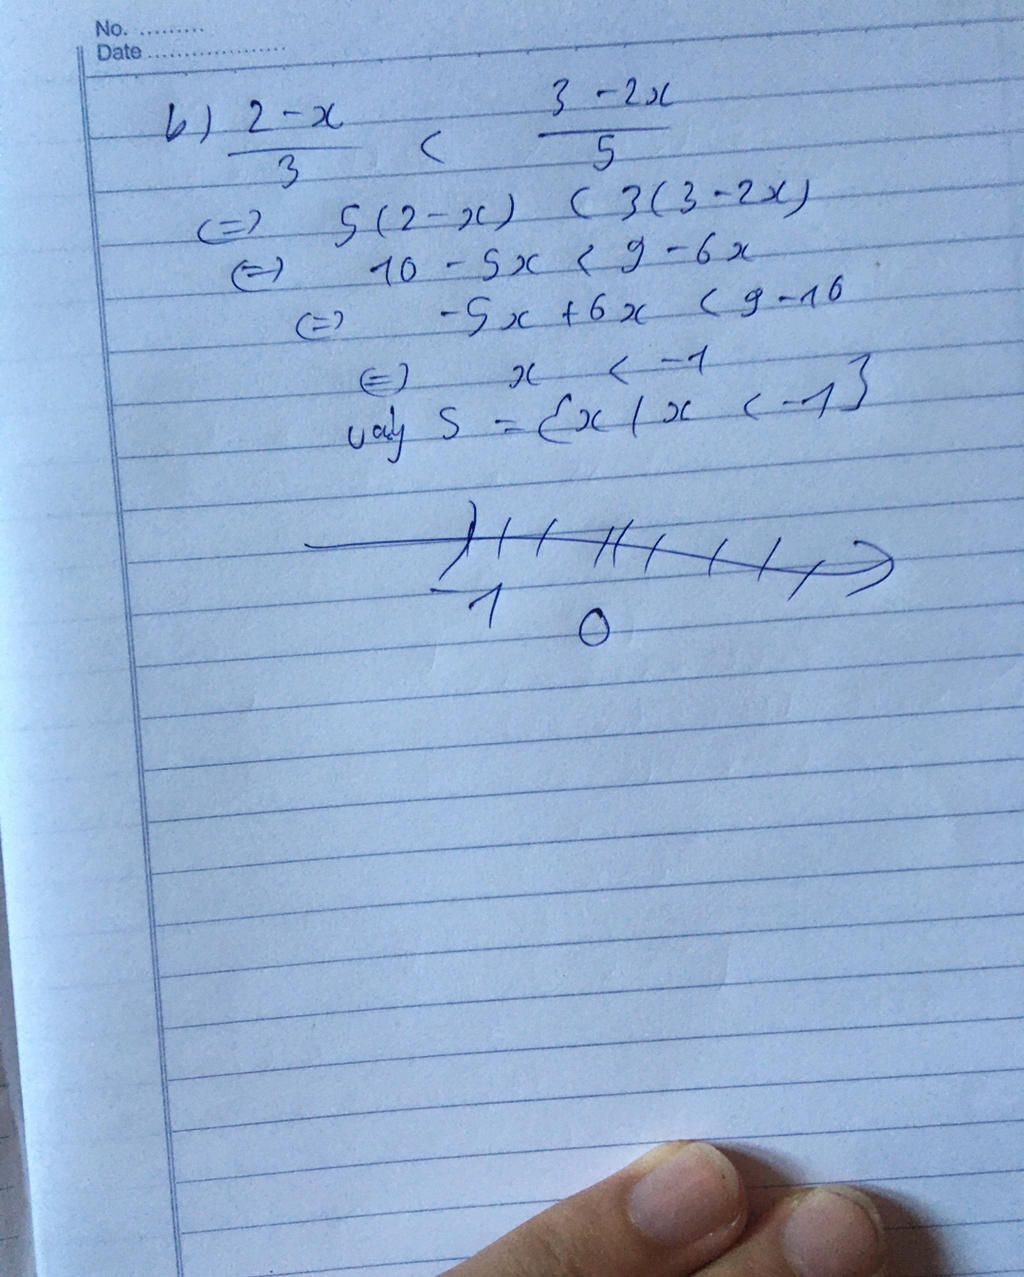 No. .........
Date ...................
b) 2 - x / 3 < 3 - 2x / 5
<=> 5(2-x) < 3(3-2x)
<=> 10 - 5x < 9 - 6x
<=> -5x + 6x < 9 - 10
<=> x < -1
vậy S = {x / x < -1}
-1 0